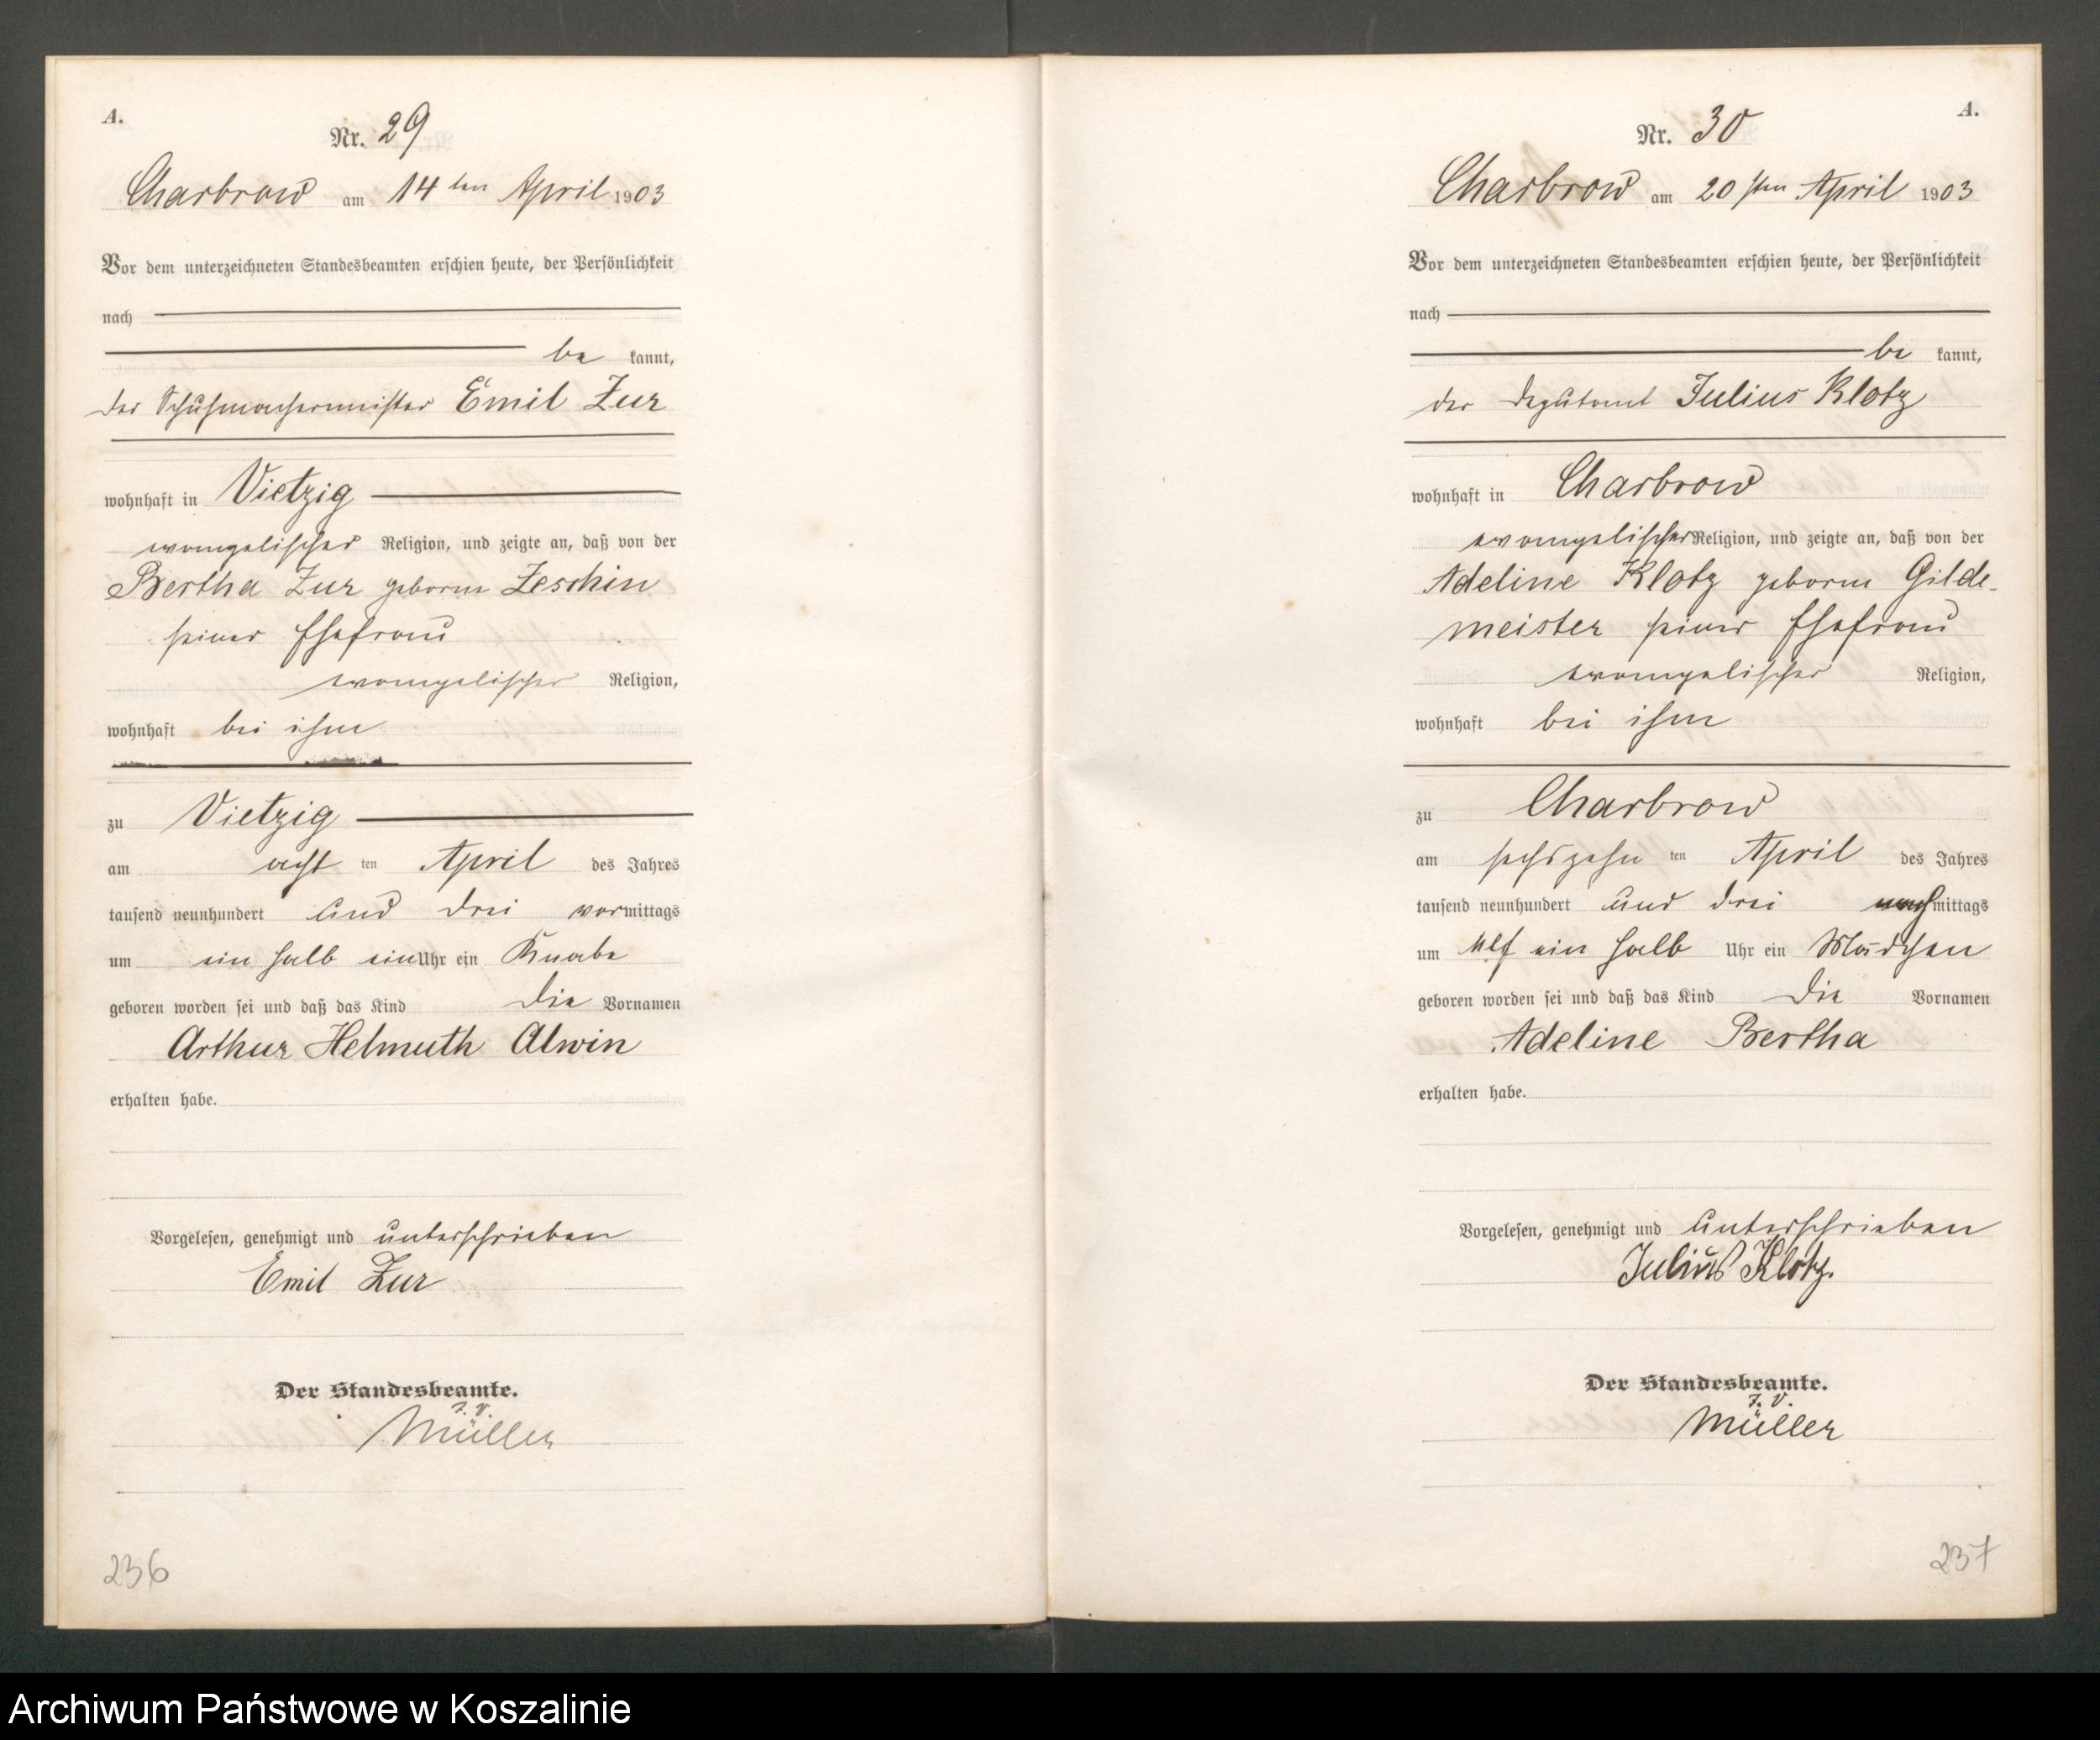 A.
Nr. 29
Charbrow am 14ten April 1903
Vor dem unterzeichneten Standesbeamten erschien heute, der Persönlichkeit
nach
be kannt,
der Schuhmachermeister Emil Zur
wohnhaft in Vietzig
evangelischer Religion, und zeigte an, daß von der
Bertha Zur geborne Zeschin
seiner Ehefrau
evangelischer Religion,
wohnhaft bei ihm
zu Vietzig
am acht ten April des Jahres
tausend neunhundert und drei vormittags
um ein halb ein Uhr ein Knabe
geboren worden sei und daß das Kind die Vornamen
Arthur Helmuth Alwin
erhalten habe.
Vorgelesen, genehmigt und unterschrieben
Emil Zur
Der Standesbeamte.
J. V.
Müller
236
A.
Nr. 30
Charbrow am 20sten April 1903
Vor dem unterzeichneten Standesbeamten erschien heute, der Persönlichkeit
nach
be kannt,
der Deputant Julius Klotz
wohnhaft in Charbrow
evangelischer Religion, und zeigte an, daß von der
Adeline Klotz geborne Gilde-
meister seiner Ehefrau
evangelischer Religion,
wohnhaft bei ihm
zu Charbrow
am sechszehn ten April des Jahres
tausend neunhundert und drei nachmittags
um elf ein halb Uhr ein Mädchen
geboren worden sei und daß das Kind die Vornamen
Adeline Bertha
erhalten habe.
Vorgelesen, genehmigt und unterschrieben
Julius Klotz.
Der Standesbeamte.
J. V.
Müller
237
Archiwum Państwowe w Koszalinie